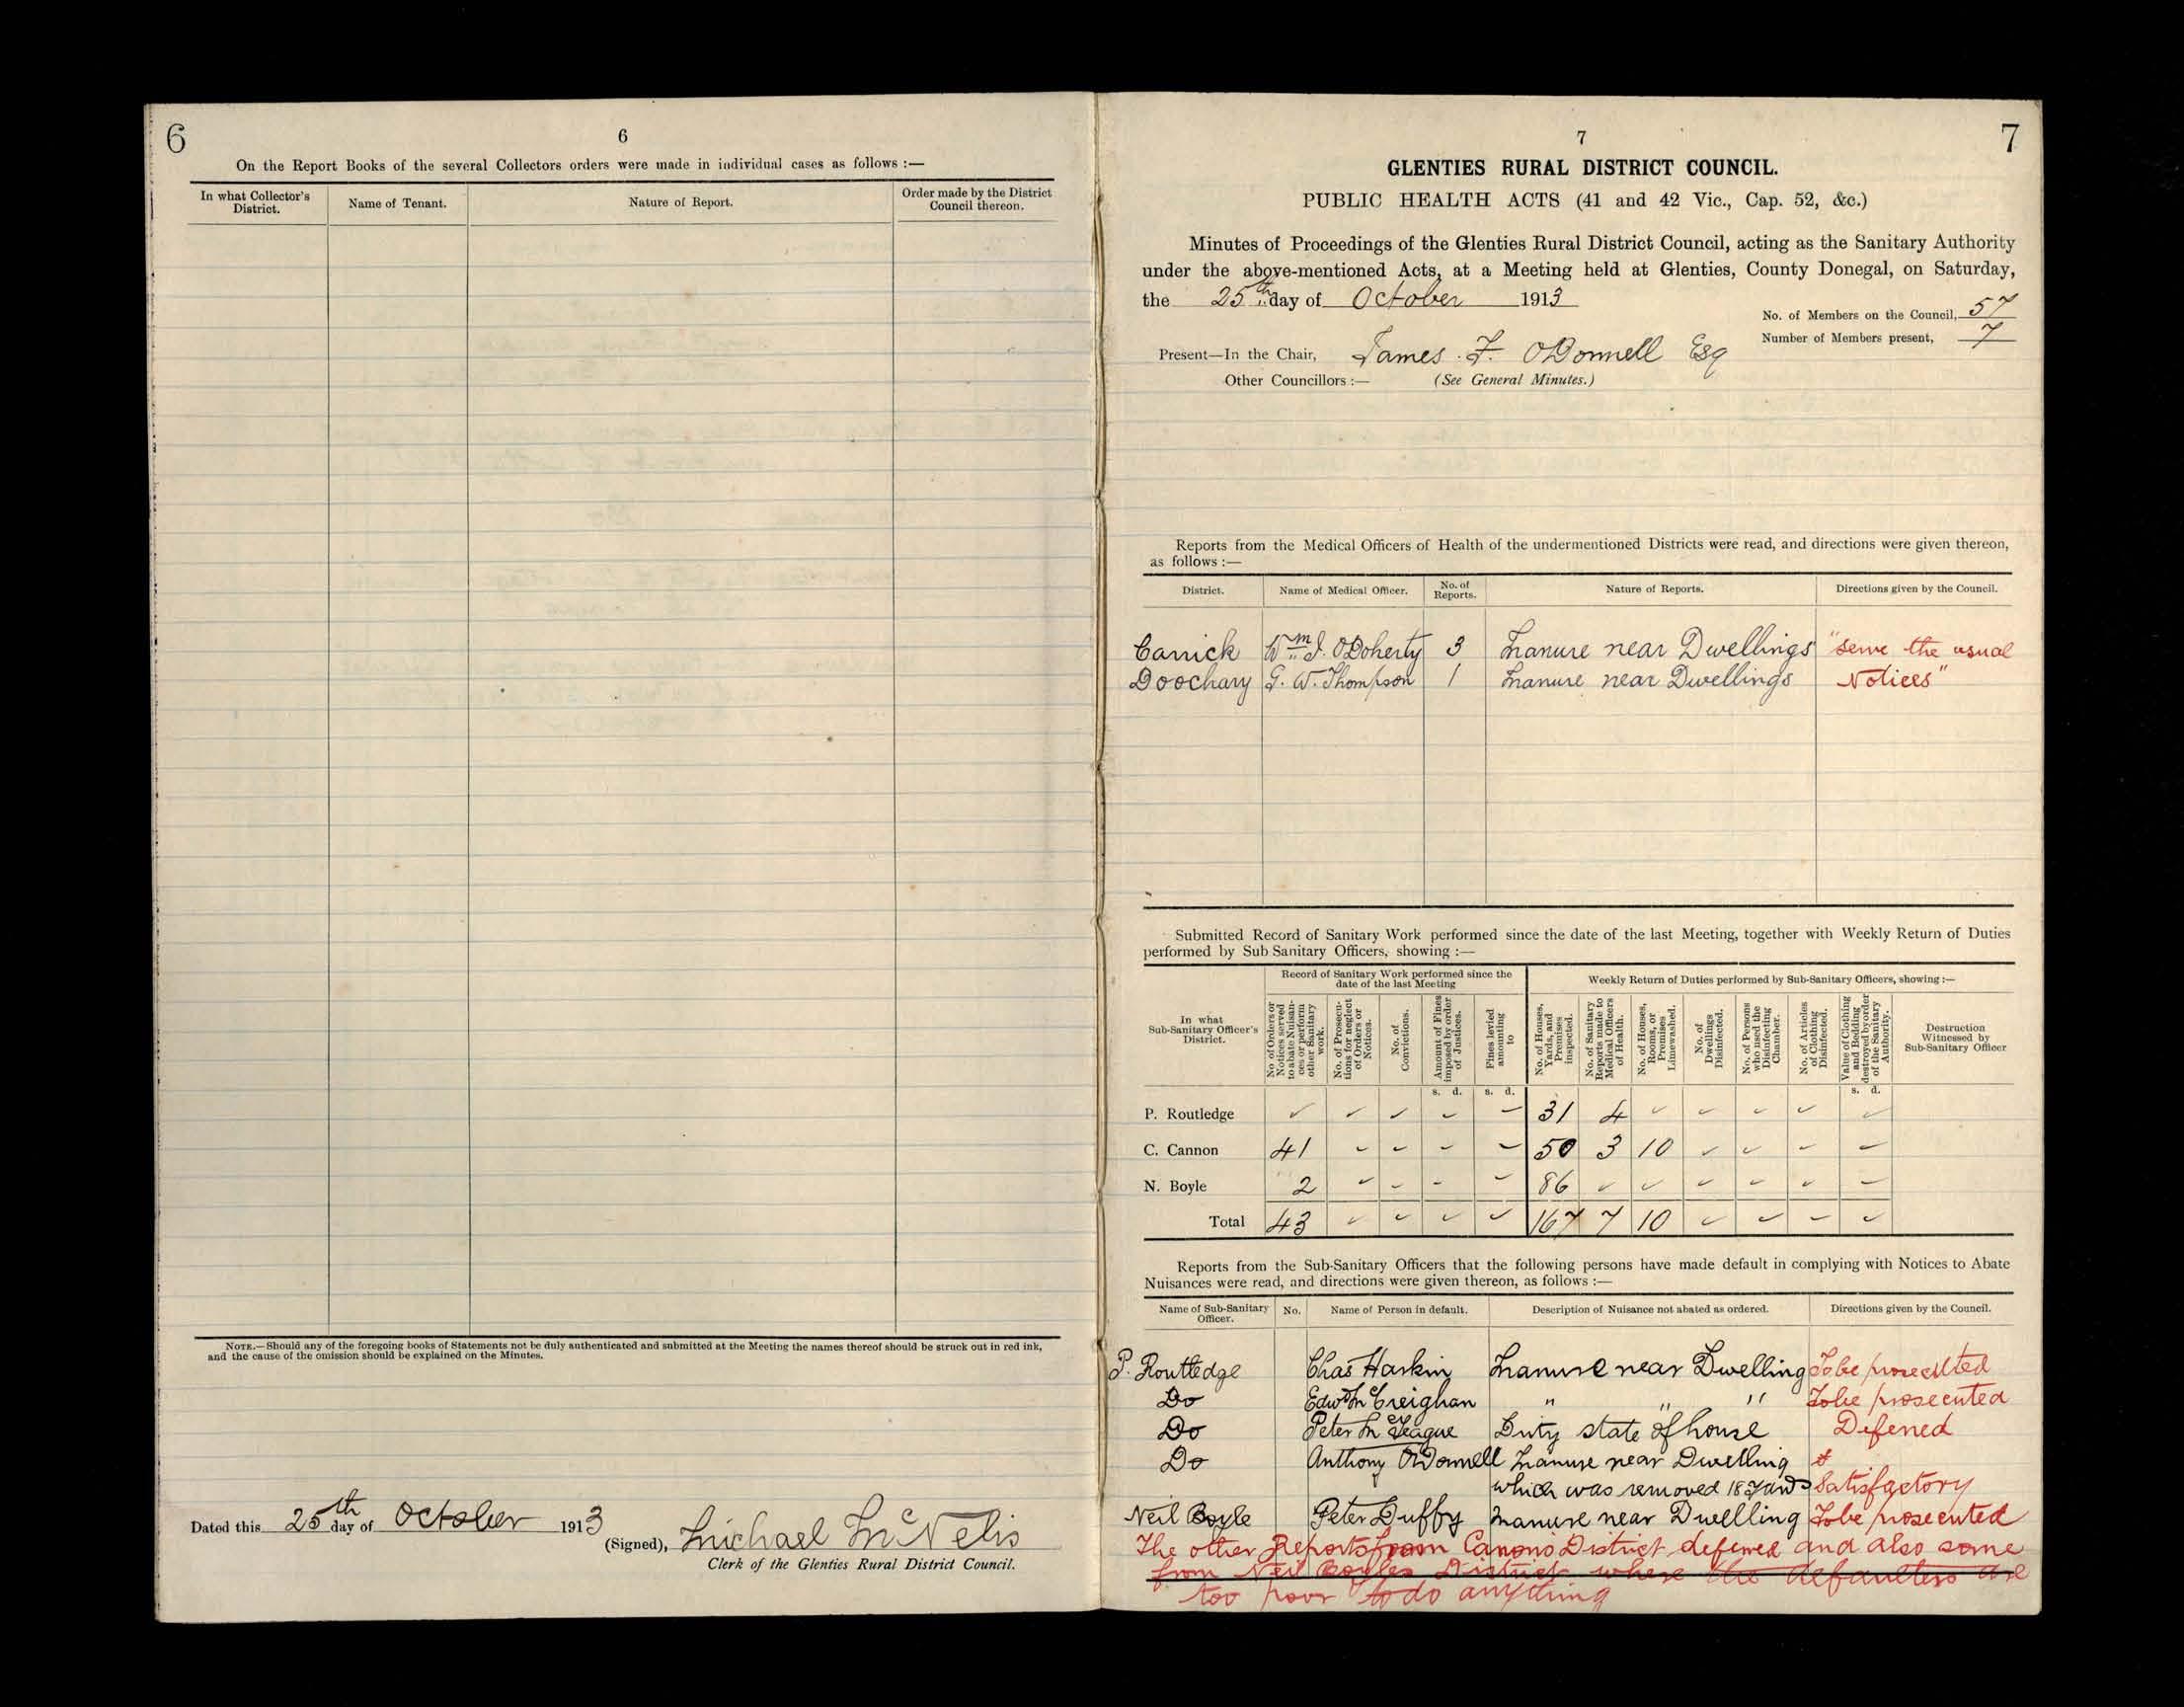 6
6
On the Report Books of the several Collectors orders were made in individual cases as follows :—
In what Collector's District.
Name of Tenant.
Nature of Report.
Order made by the District Council thereon.
NOTE.—Should any of the foregoing books of Statements not be duly authenticated and submitted at the Meeting the names thereof should be struck out in red ink,
and the cause of the omission should be explained on the Minutes.
Dated this 25th day of October 1913
(Signed), Michael McNelis
Clerk of the Glenties Rural District Council.
7
7
GLENTIES RURAL DISTRICT COUNCIL.
PUBLIC HEALTH ACTS (41 and 42 Vic., Cap. 52, &c.)
Minutes of Proceedings of the Glenties Rural District Council, acting as the Sanitary Authority
under the above-mentioned Acts, at a Meeting held at Glenties, County Donegal, on Saturday,
the 25th day of October 1913
No. of Members on the Council, 57
Number of Members present, 7
Present—In the Chair, James F. O'Donnell Esq
Other Councillors :— (See General Minutes.)
Reports from the Medical Officers of Health of the undermentioned Districts were read, and directions were given thereon,
as follows :—
District. Name of Medical Officer. No. of Reports. Nature of Reports. Directions given by the Council.
Carrick Wm J. O'Doherty 3 Manure near Dwellings "Serve the usual
Doochary G. W. Thompson 1 Manure near Dwellings Notices"
Submitted Record of Sanitary Work performed since the date of the last Meeting, together with Weekly Return of Duties
performed by Sub Sanitary Officers, showing :—
Record of Sanitary Work performed since the date of the last Meeting
Weekly Return of Duties performed by Sub-Sanitary Officers, showing :—
In what Sub-Sanitary Officer's District.
No of Orders or Notices served to abate Nuisances or perform other Sanitary work.
No. of Prosecutions for neglect of Orders or Notices.
No. of Convictions.
Amount of Fines imposed by order of Justices.
Fines levied amounting to
No. of Houses, Yards, and Premises inspected.
No. of Sanitary Reports made to Medical Officers of Health.
No. of Houses, Rooms, or Premises Limewashed.
No. of Dwellings Disinfected.
No. of Persons who used the Disinfecting Chamber.
No. of Articles of Clothing Disinfected.
Value of Clothing and Bedding destroyed by order of the Sanitary Authority.
Destruction Witnessed by Sub-Sanitary Officer
s. d. s. d. s. d.
P. Routledge 31 4
C. Cannon 41 50 3 10
N. Boyle 2 86
Total 43 167 7 10
Reports from the Sub-Sanitary Officers that the following persons have made default in complying with Notices to Abate
Nuisances were read, and directions were given thereon, as follows :—
Name of Sub-Sanitary Officer. No. Name of Person in default. Description of Nuisance not abated as ordered. Directions given by the Council.
P. Routledge Chas Harkin Manure near Dwelling To be prosecuted
Do Edwd McCreighan " " " To be prosecuted
Do Peter McTeague Dirty state of house Deferred
Do Anthony O'Donnell Manure near Dwelling
which was removed 18 Yards Satisfactory
Neil Boyle Peter Duffy Manure near Dwelling To be prosecuted
The other Reports from Canons District deferred and also some
from Neil Boyles District where the defaulters are
too poor to do anything